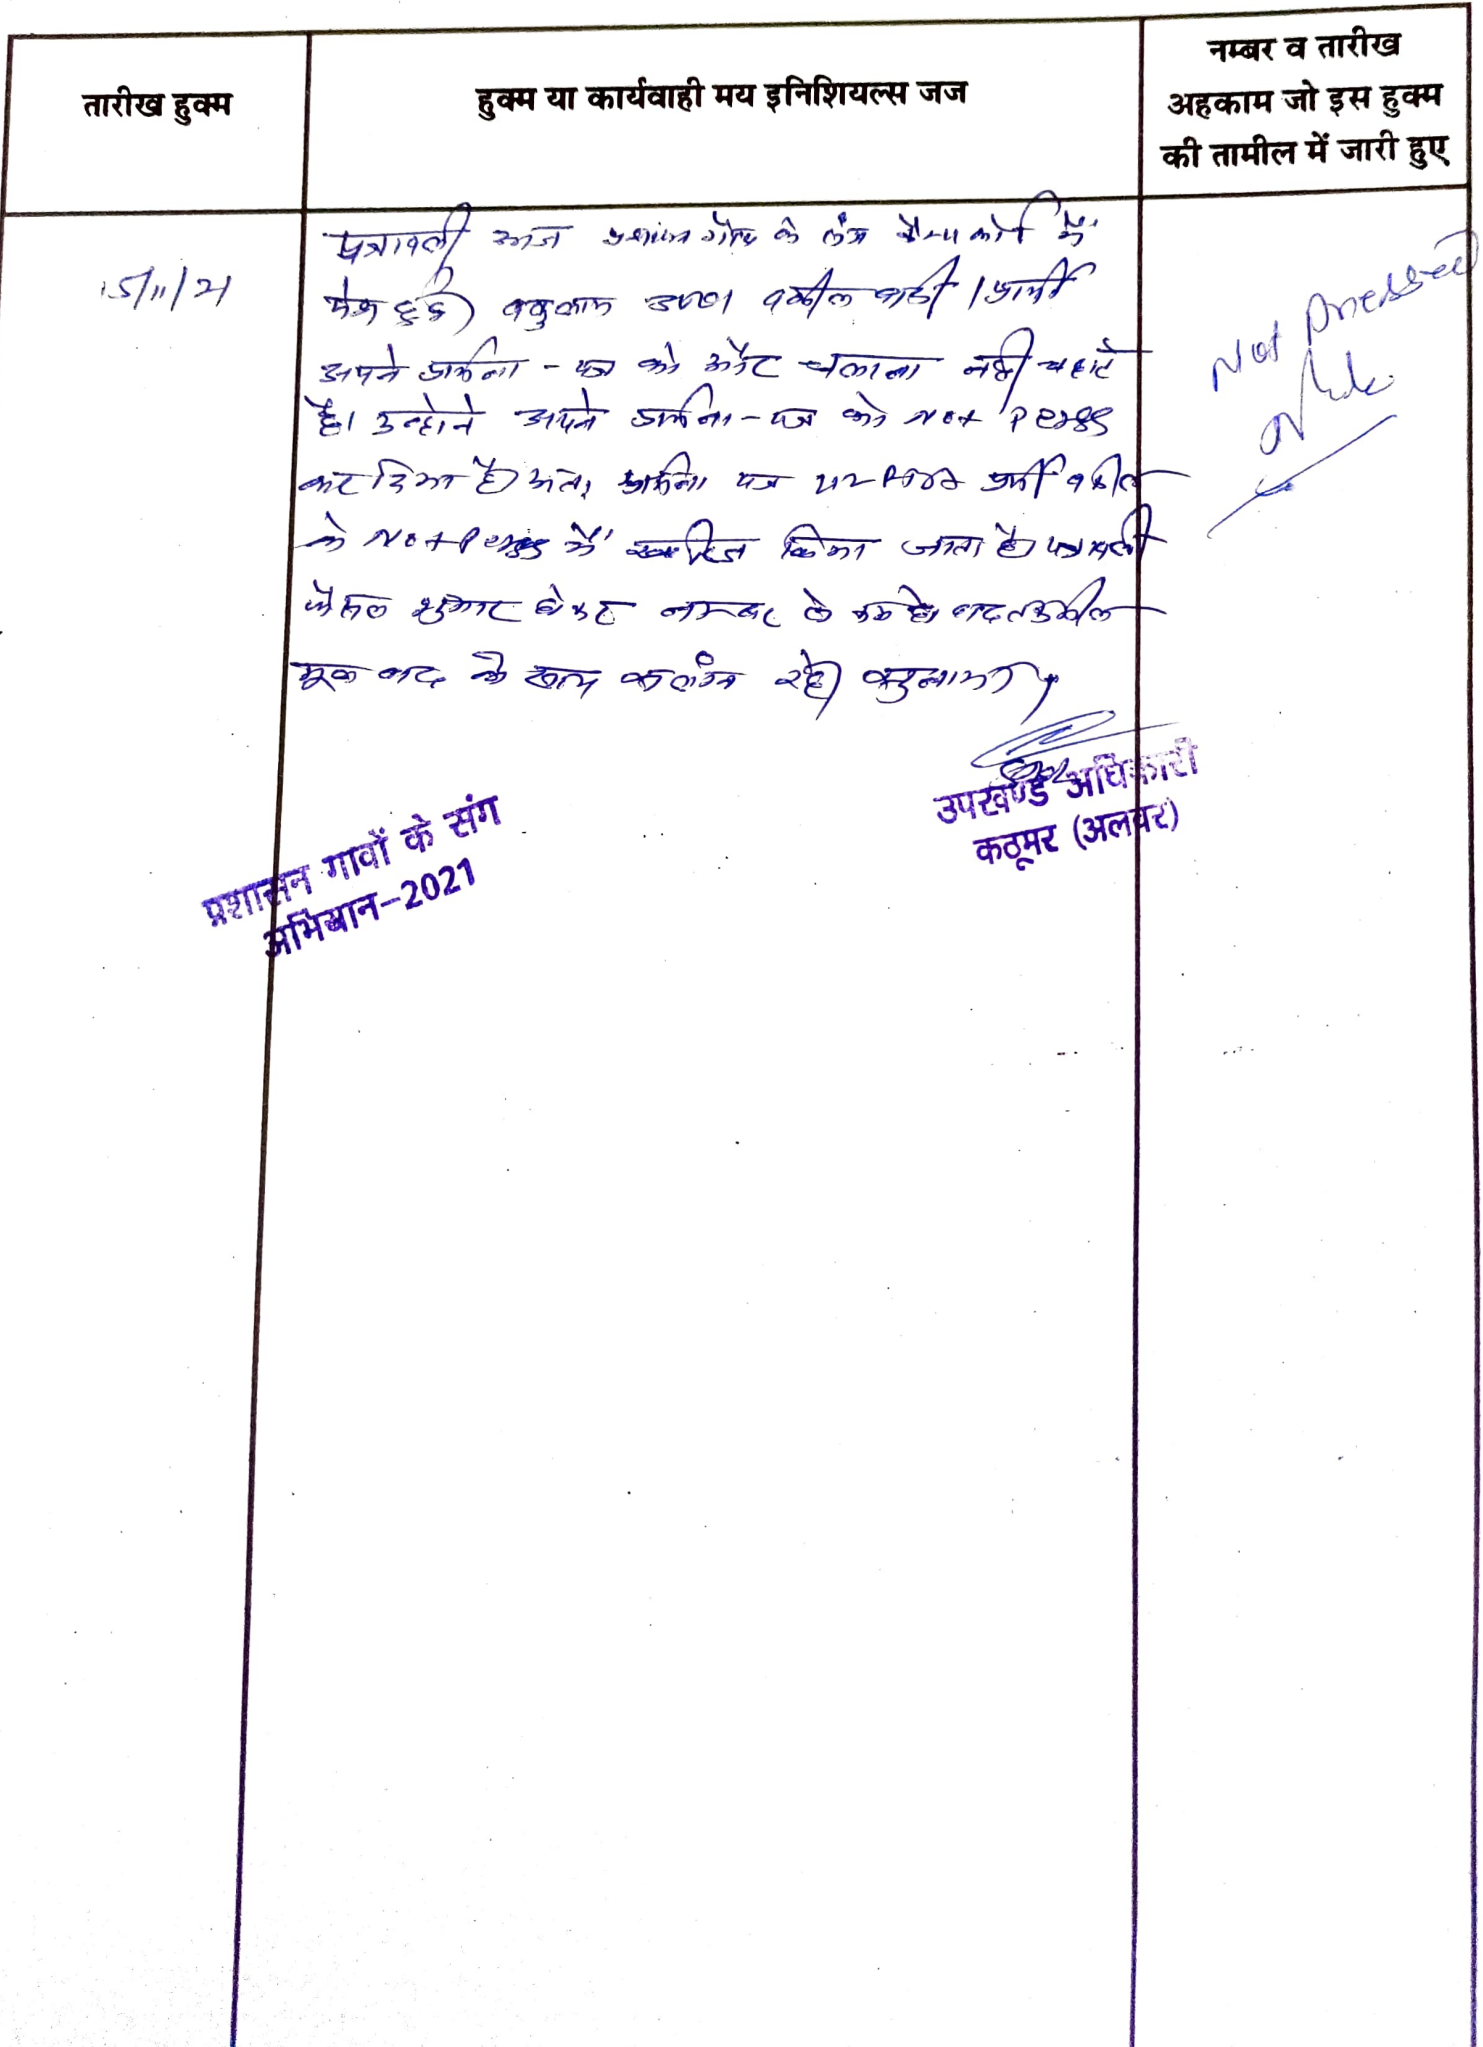 तारीख हुक्म
हुक्म या कार्यवाही मय इनिशियल्स जज
नम्बर व तारीख
अहकाम जो इस हुक्म
की तामील में जारी हुए
15/11/21
पत्रावली आज प्रशासन गाँव के संग कैम्प कोर्ट में
पेश हुई। वकील वादी / प्रार्थी
अपने प्रार्थना - पत्र को और चलाना नहीं चहाते
है। उन्होने अपने प्रार्थना - पत्र को Not Press
कर दिया है। अतः प्रार्थना पत्र प्रार्थी वकील
के Not Press में खारिज किया जाता है। पत्रावली
फैसल शुमार होकर नम्बर से कम हो। बाद तकमील
मूल वाद के साथ संलग्न रहे।
Not Pressed
उपखण्ड अधिकारी
कठूमर (अलवर)
प्रशासन गावों के संग
अभियान-2021